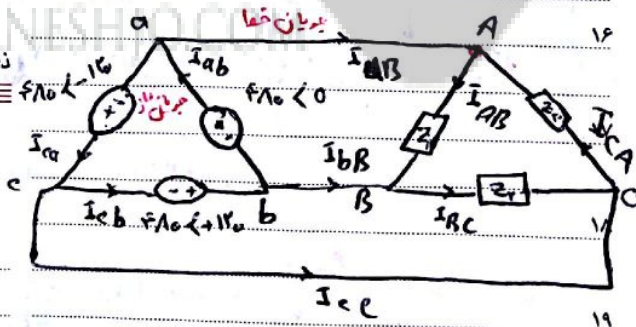 NESHJO.COM
جریان خط
۱۶
a
A
I_aA
I_ab
۴۸۰ < -۱۲۰
جریان فاز
۴۸۰ < ۰
+ -
I_AB
Z_1
I_CA
I_ca
I_bB
c
I_cb
- +
۴۸۰ < +۱۲۰
b
B
I_BC
Z_2
C
۱۸
I_cC
۱۹